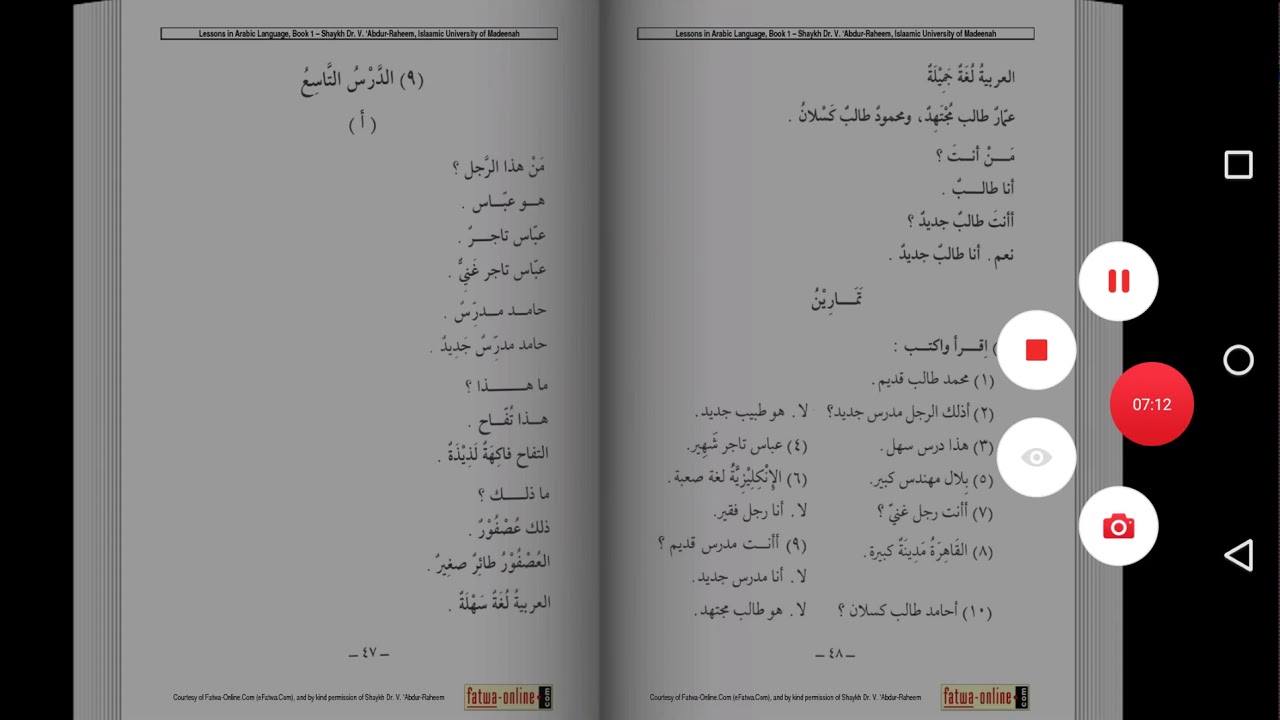 Lessons in Arabic Language, Book 1 – Shaykh Dr. V. 'Abdur-Raheem, Islaamic University of Madeenah
(٩) الدَّرْسُ التَّاسِعُ
( أ )
مَنْ هذا الرَّجل ؟
هــو عبّــاس .
عبّاس تاجــرٌ .
عبّاس تاجر غَنِيٌّ .
حامــد مــدرّسٌ .
حامد مدرّسٌ جَدِيدٌ .
ما هــــذا ؟
هــذا تُفّــاح .
التفاح فاكِهَةٌ لَذِيْذَةٌ .
ما ذلــــك ؟
ذلك عُصْفُوْرٌ .
العُصْفُوْرُ طائِرٌ صغيرٌ .
العربيةُ لُغَةٌ سَهْلَةٌ .
– ٤٧ –
Courtesy of Fatwa-Online.Com (eFatwa.Com), and by kind permission of Shaykh Dr. V. 'Abdur-Raheem
fatwa-online com
Lessons in Arabic Language, Book 1 – Shaykh Dr. V. 'Abdur-Raheem, Islaamic University of Madeenah
العربيةُ لُغَةٌ جَمِيْلَةٌ
عمّارٌ طالب مُجْتَهِدٌ، ومحمودٌ طالبٌ كَسْلانُ .
مَـــنْ أنــتَ ؟
أنا طالــــبٌ .
أأنتَ طالبٌ جديدٌ ؟
نعم . أنا طالبٌ جديدٌ .
تَمَـــارِيْنُ
) اِقــرأ واكتــب :
(١) محمد طالب قديم.
(٢) أذلك الرجل مدرس جديد؟ لا. هو طبيب جديد.
(٣) هذا درس سهل. (٤) عباس تاجر شَهِير.
(٥) بِلال مهندس كبير. (٦) الإِنْكِلِيْزِيَّةُ لغة صعبة.
(٧) أأنت رجل غنيّ ؟ لا. أنا رجل فقير.
(٨) القَاهِرَةُ مَدِينَةٌ كبيرة. (٩) أأنــت مدرس قديم ؟
لا. أنا مدرس جديد.
(١٠) أحامد طالب كسلان ؟ لا. هو طالب مجتهد.
– ٤٨ –
Courtesy of Fatwa-Online.Com (eFatwa.Com), and by kind permission of Shaykh Dr. V. 'Abdur-Raheem
fatwa-online com
07:12